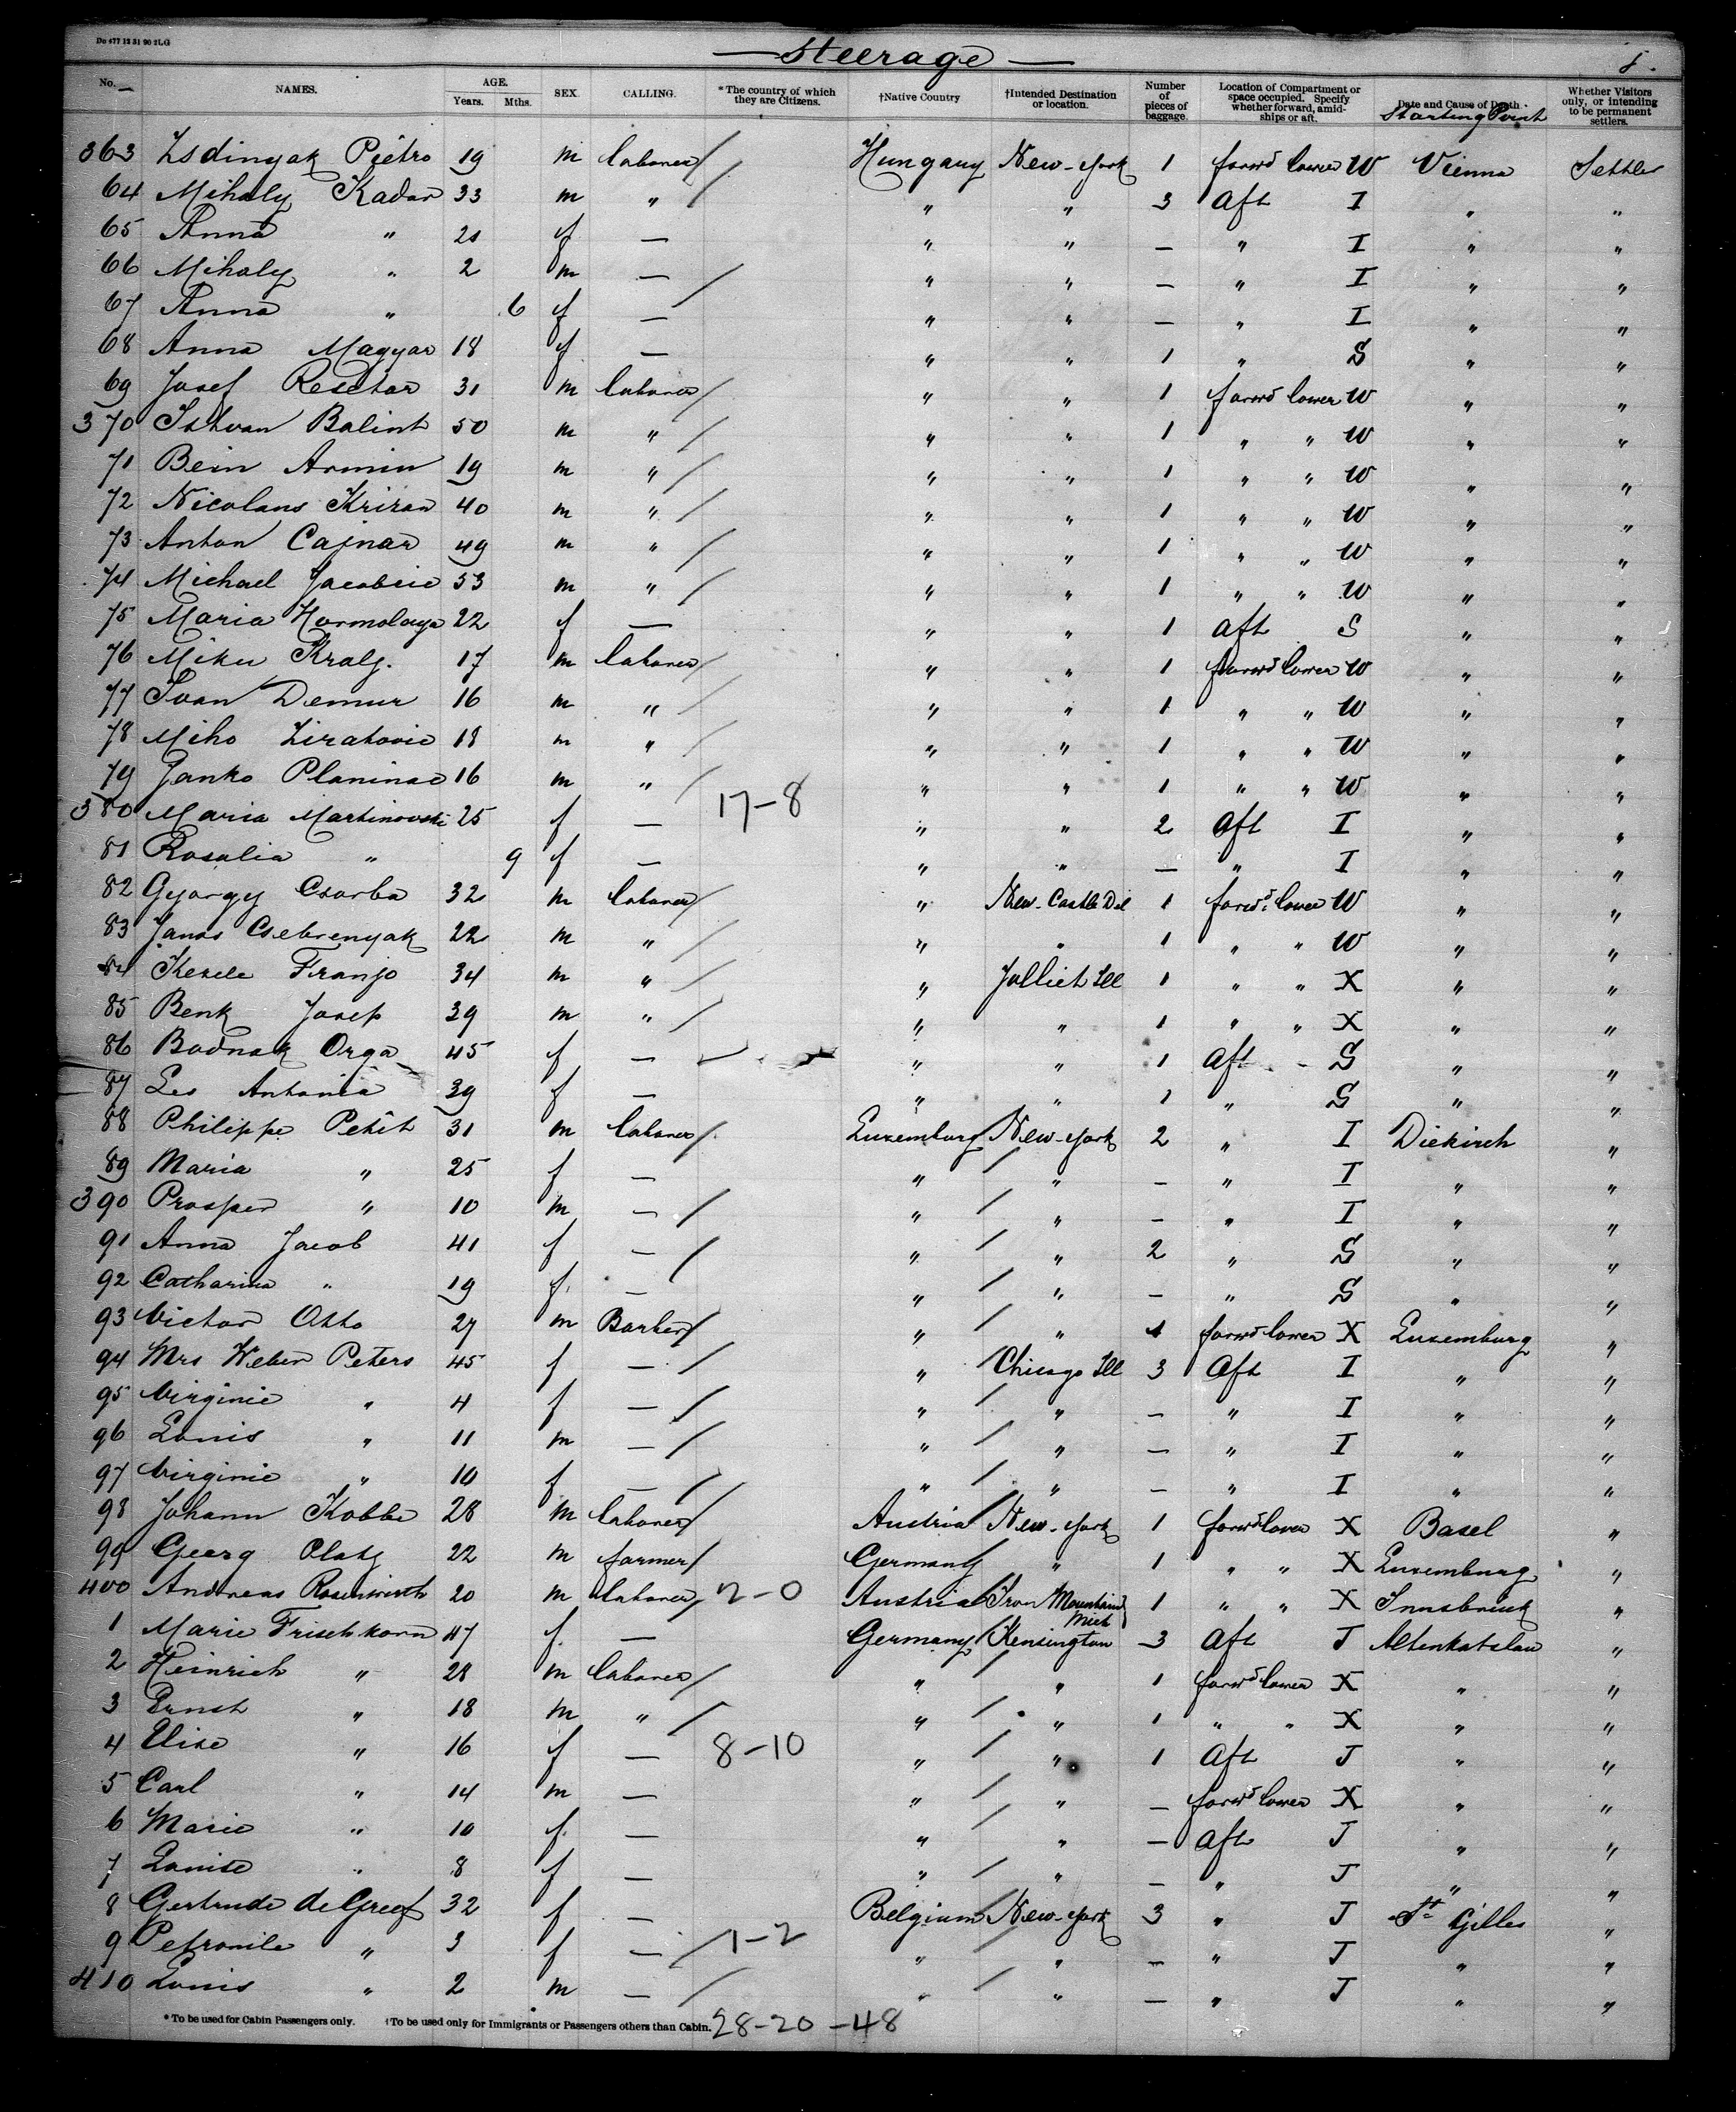 Do 477 13 31 90 2LG
— Steerage —
No. NAMES. AGE. Years. Mths. SEX. CALLING. *The country of which they are Citizens. †Native Country †Intended Destination or location. Number of pieces of baggage. Location of Compartment or space occupied. Specify whether forward, amidships or aft. Date and Cause of Death Starting Point Whether Visitors only, or intending to be permanent settlers.
363 Zsdinyak Pietro 19 m laborer Hungary New-York 1 forwd lower W Vienna Settler
64 Mihaly Kadar 33 m " " " 3 Aft I " "
65 Anna " 21 f — " " — " I " "
66 Mihaly " 2 m — " " — " I " "
67 Anna " 6 f — " " — " I " "
68 Anna Magyar 18 f — " " 1 " S " "
69 Josef Resetar 31 m laborer " " 1 forwd lower W " "
370 Istvan Balint 50 m " " " 1 " " W " "
71 Bein Armin 19 m " " " 1 " " W " "
72 Nicolaus Krizan 40 m " " " 1 " " W " "
73 Anton Cajnar 49 m " " " 1 " " W " "
74 Michael Jacobcic 53 m " " " 1 " " W " "
75 Maria Harmolaya 22 f — " " 1 Aft S " "
76 Miku Kralj. 17 m laborer " " 1 forwd lower W " "
77 Ivan Demur 16 m " " " 1 " " W " "
78 Miho Ziratovic 18 m " " " 1 " " W " "
79 Janko Planinac 16 m " " " 1 " " W " "
380 Maria Martinovski 25 f — 17-8 " " 2 Aft I " "
81 Rosalia " 9 f — " " — " I " "
82 Gyorgy Csorba 32 m laborer " New-Castle Del 1 forwd lower W " "
83 Janos Csebrenyak 22 m " " " 1 " " W " "
84 Kezele Franjo 34 m " " Jolliet Ill 1 " " X " "
85 Benk Josep 39 m " " " 1 " " X " "
86 Bodnak Orga 45 f — " " 1 Aft - S " "
87 Les Antonia 39 f — " " 1 " S " "
88 Philippe Petit 31 m laborer Luxemburg New-York 2 " I Diekirch "
89 Maria " 25 f — " " — " I " "
390 Prosper " 10 m — " " — " I " "
91 Anna Jacob 41 f — " " 2 " S " "
92 Catharina " 19 f. — " " — " S " "
93 Victor Otto 27 m Barber " " 1 forwd lower X Luxemburg "
94 Mrs Weber Peters 45 f — " Chicago Ill 3 Aft I " "
95 Virginie " 4 f — " " — " I " "
96 Louis " 11 m — " " — " I " "
97 Virginie " 10 f — " " — " I " "
98 Johann Kobbe 28 m laborer Austria New-York 1 forwd lower X Basel "
99 Georg Platz 22 m farmer Germany " 1 " " X Luxemburg "
400 Andreas Rosenwirth 20 m laborer 2-0 Austria Iron Mountain Mich 1 " " X Innsbruck "
1 Marie Frischkorn 47 f. — Germany Kensington 3 Aft J Altenkatslau "
2 Heinrich " 28 m laborer " " 1 forwd lower X " "
3 Ernst " 18 m " " " 1 " " X " "
4 Elise " 16 f — 8-10 " " 1 Aft J " "
5 Carl " 14 m — " " — forwd lower X " "
6 Marie " 10 f. — " " — Aft J " "
7 Louise " 8 f — " " — " J " "
8 Gertrude de Greef 32 f — Belgium New-York 3 " J St Gilles "
9 Petronile " 3 f — 1-2 " " — " J " "
410 Louis " 2 m — " " — " J " "
*To be used for Cabin Passengers only. †To be used only for Immigrants or Passengers others than Cabin. 28-20-48